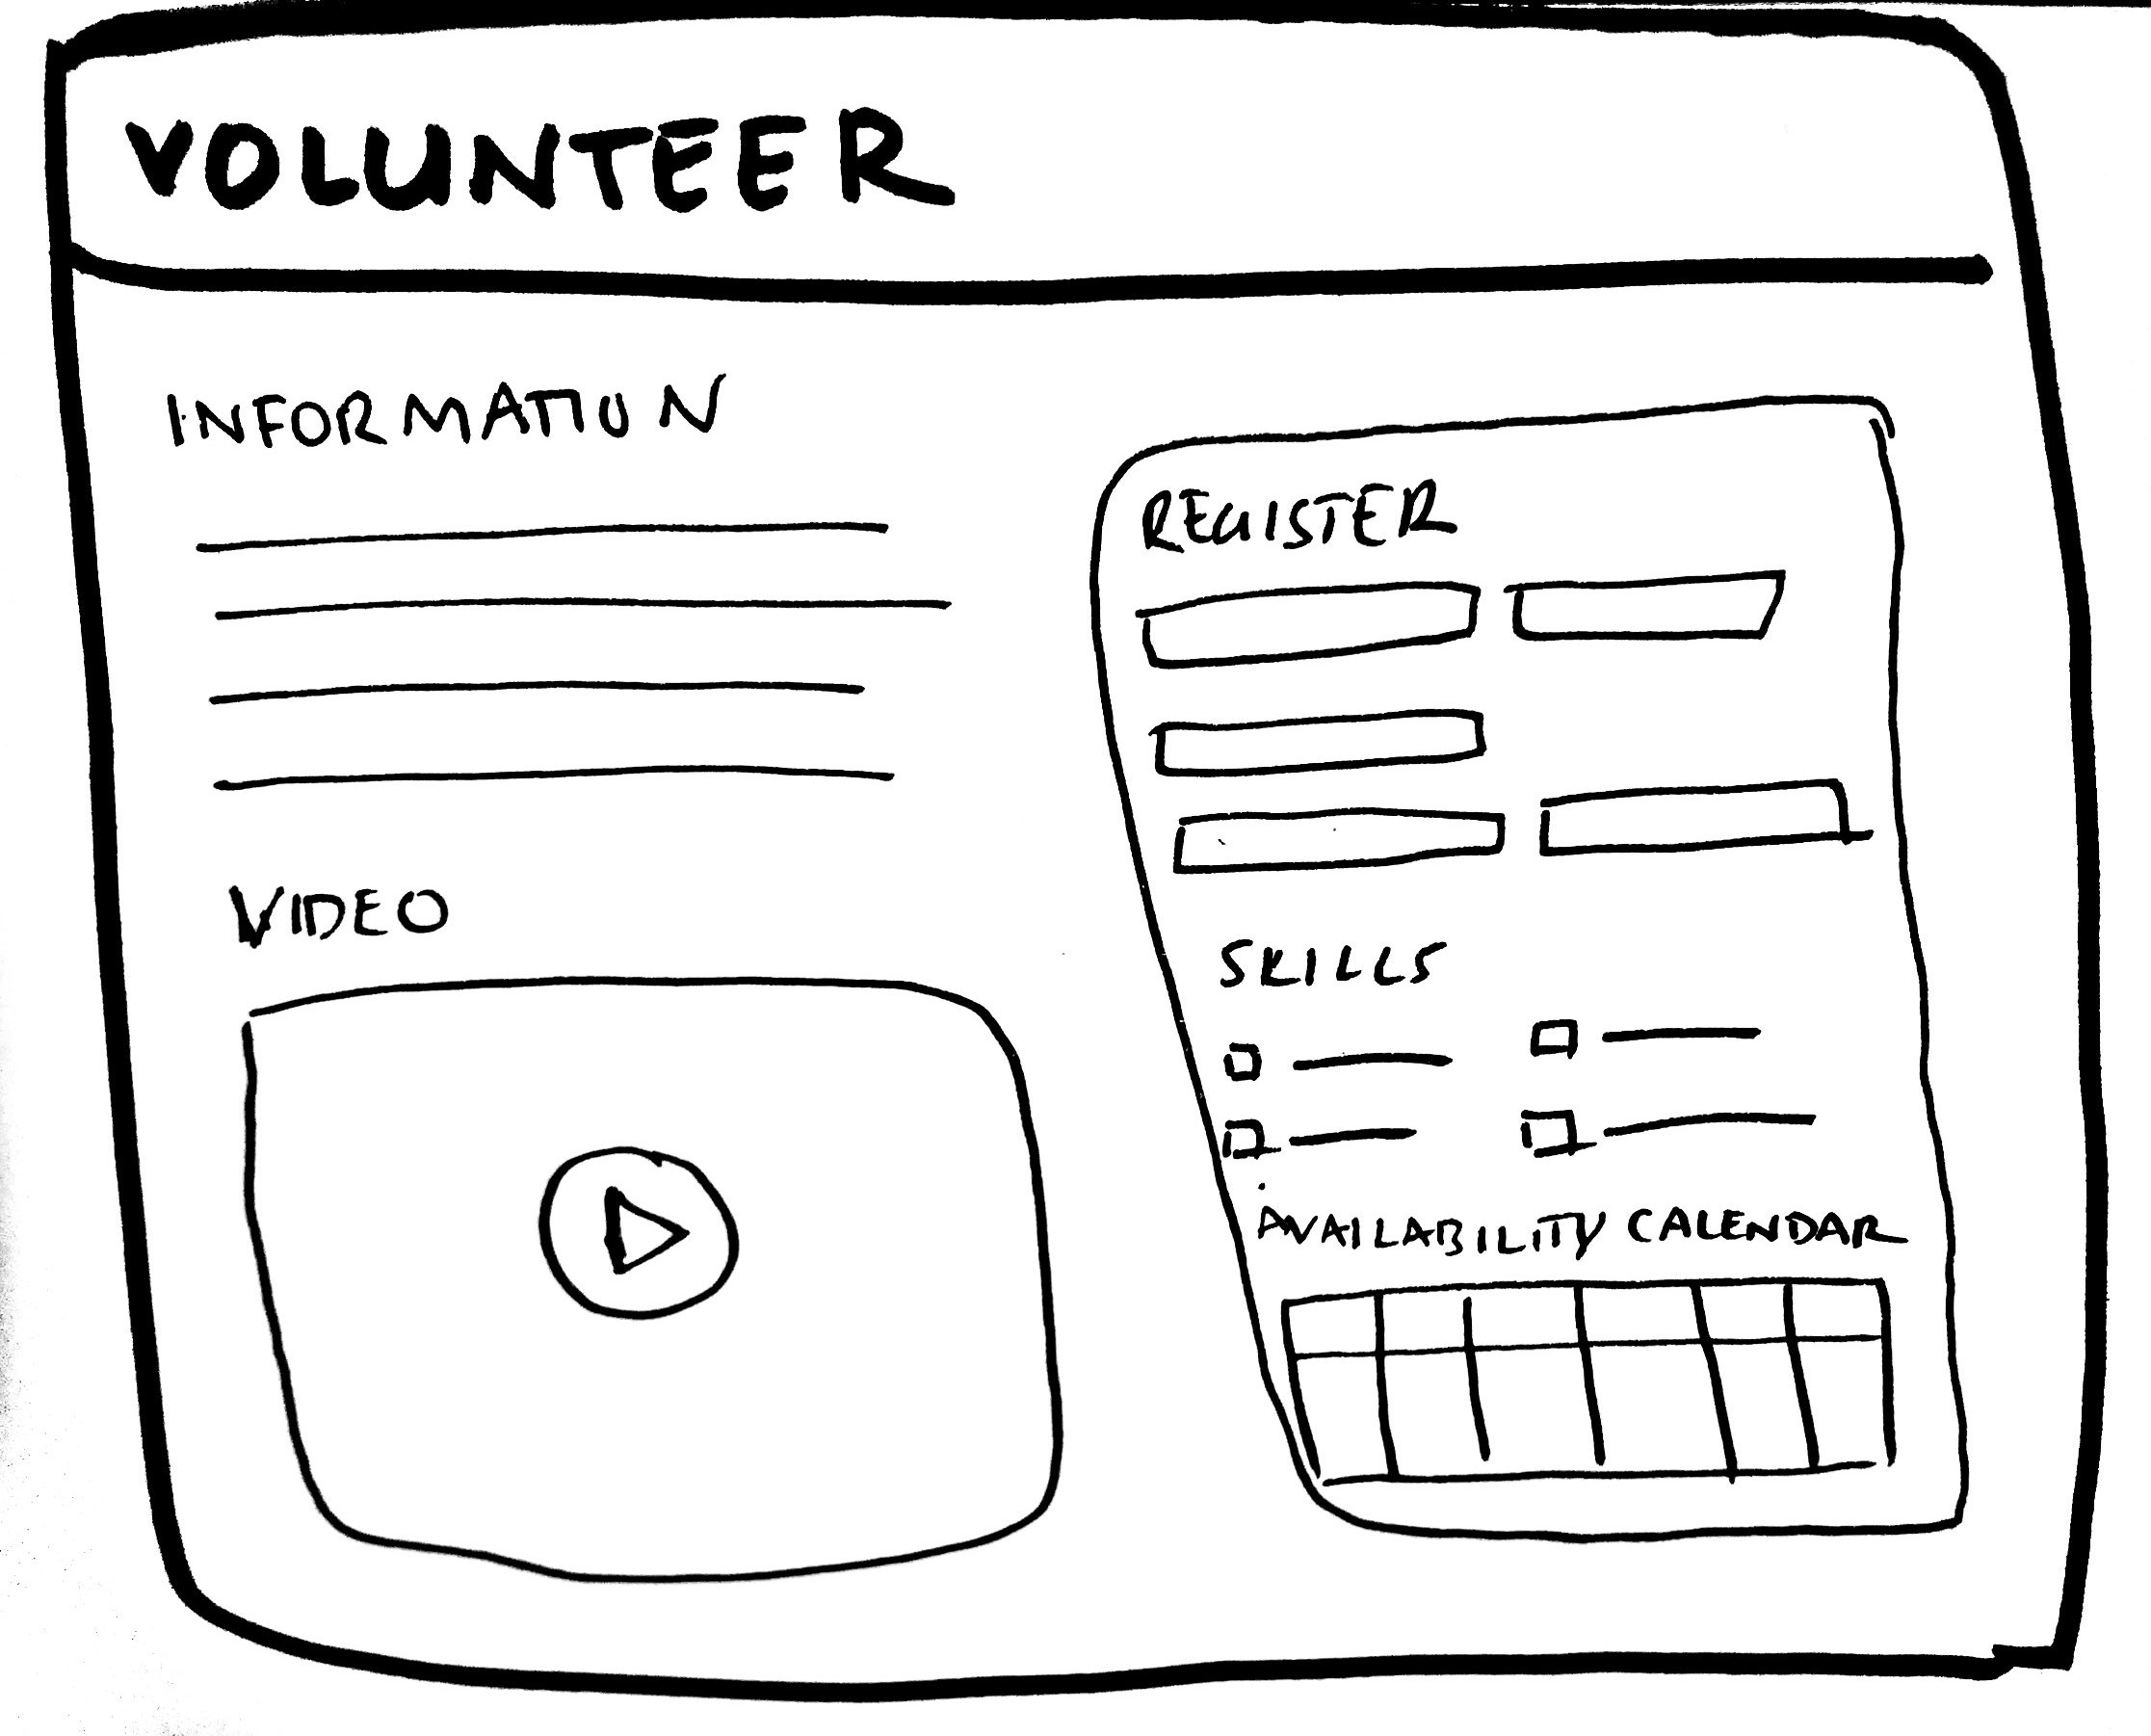 VOLUNTEER
INFORMATION
VIDEO
REGISTER
SKILLS
AVAILABILITY CALENDAR